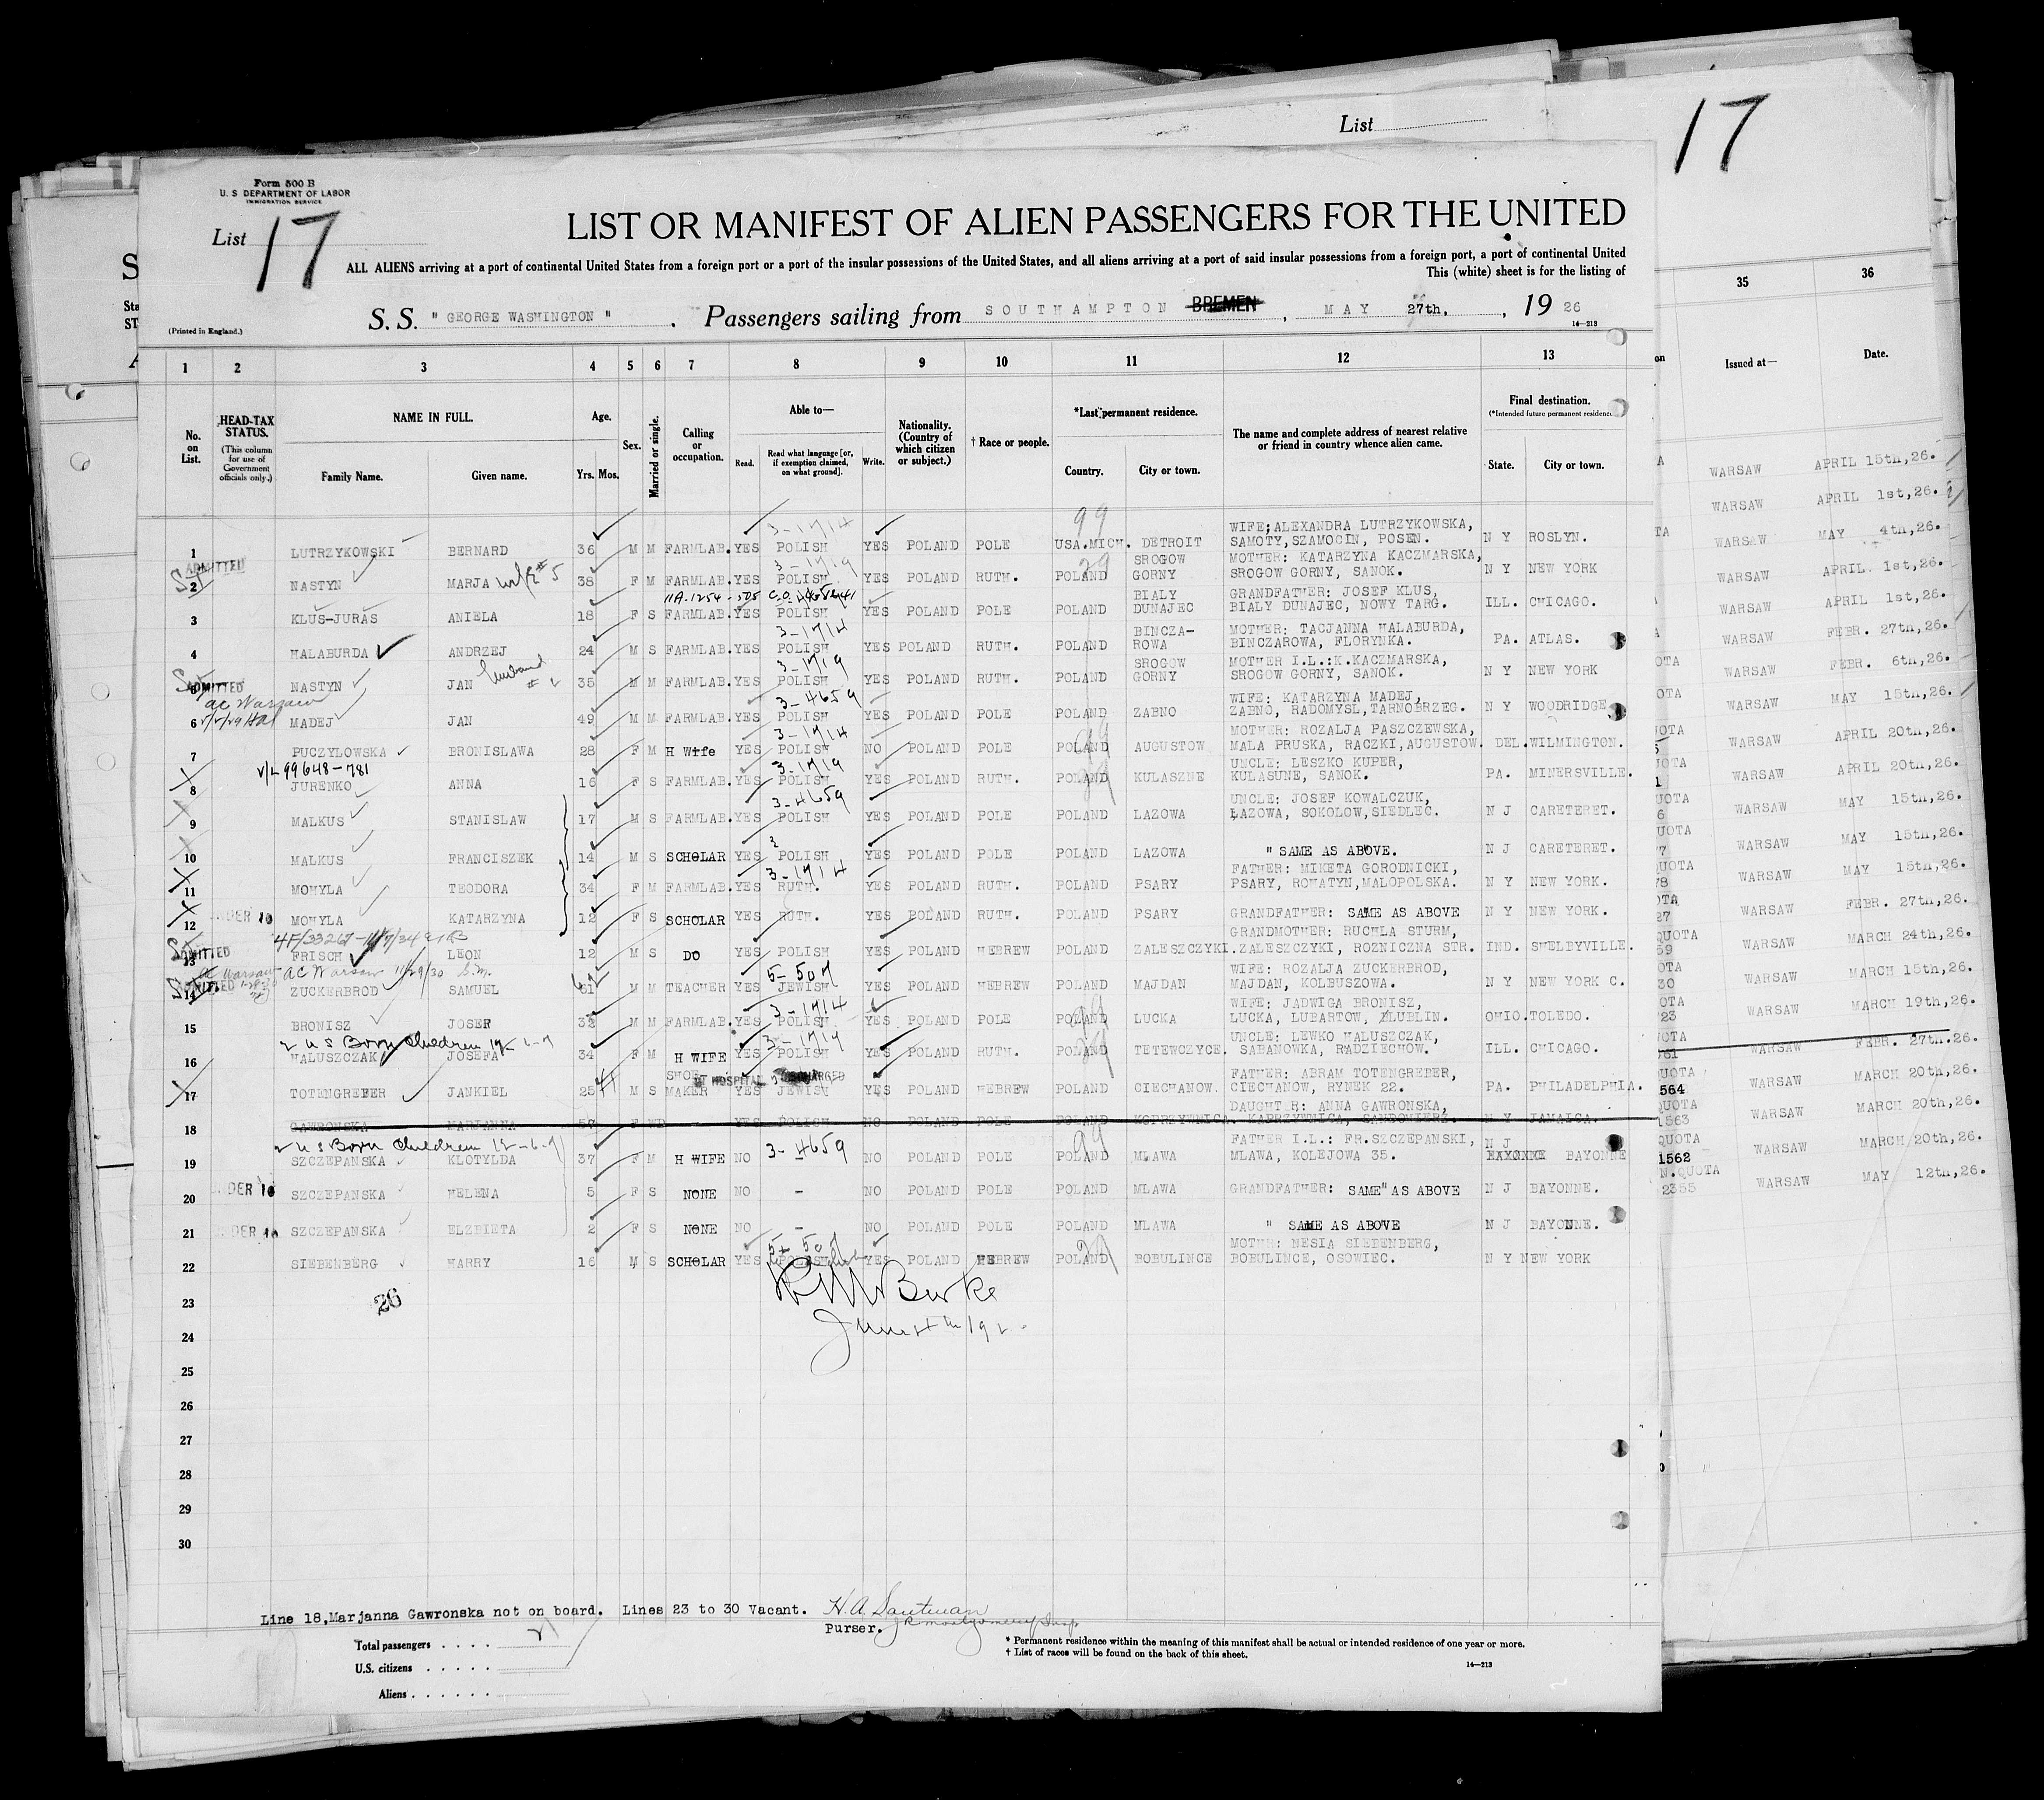 List
17
Form 500 B
U. S DEPARTMENT OF LABOR
IMMIGRATION SERVICE
List 17
LIST OR MANIFEST OF ALIEN PASSENGERS FOR THE UNITED
ALL ALIENS arriving at a port of continental United States from a foreign port or a port of the insular possessions of the United States, and all aliens arriving at a port of said insular possessions from a foreign port, a port of continental United
This (white) sheet is for the listing of
(Printed in England.)
S. S. " GEORGE WASHINGTON " . Passengers sailing from SOUTHAMPTON BREMEN , MAY 27th, , 19 26
14—213
1 2 3 4 5 6 7 8 9 10 11 12 13
35 36
No. on List.
HEAD-TAX STATUS.
(This column for use of Government officials only.)
NAME IN FULL.
Family Name. Given name.
Age.
Yrs. Mos.
Sex.
Married or single.
Calling or occupation.
Able to—
Read. Read what language [or, if exemption claimed, on what ground]. Write.
Nationality. (Country of which citizen or subject.)
† Race or people.
*Last permanent residence.
Country. City or town.
The name and complete address of nearest relative or friend in country whence alien came.
Final destination.
(*Intended future permanent residence
State. City or town.
Issued at— Date.
3-1714 99 WIFE;ALEXANDRA LUTRZYKOWSKA,
1 LUTRZYKOWSKI BERNARD 36 M M FARMLAB. YES POLISH YES POLAND POLE USA.MICH. DETROIT SAMOTY,SZAMOCIN, POSEN. N Y ROSLYN.
ADMITTED 3-1719 SROGOW MOTHER: KATARZYNA KACZMARSKA,
2 NASTYN MARJA wife #5 38 F M FARMLAB. YES POLISH YES POLAND RUTH. POLAND GORNY SROGOW GORNY, SANOK. N Y NEW YORK
BIALY GRANDFATHER: JOSEF KLUS,
3 KLUS-JURAS ANIELA 18 F S FARMLAB. YES POLISH YES POLAND POLE POLAND DUNAJEC BIALY DUNAJEC, NOWY TARG. ILL. CHICAGO.
3-1714 BINCZA- MOTHER: TACJANNA HALABURDA,
4 HALABURDA ANDRZEJ 24 M S FARMLAB. YES POLISH YES POLAND RUTH. POLAND ROWA BINCZAROWA, FLORYNKA. PA. ATLAS.
husband 3-1719 SROGOW MOTHER I.L.:K.KACZMARSKA,
ADMITTED NASTYN JAN 35 M M FARMLAB. YES POLISH YES POLAND RUTH. POLAND GORNY SROGOW GORNY, SANOK. N Y NEW YORK
ac Warsaw 3-4659 WIFE: KATARZYNA MADEJ,
6 MADEJ JAN 49 M M FARMLAB. YES POLISH YES POLAND POLE POLAND ZABNO ZABNO, RADOMYSL,TARNOBRZEG. N Y WOODRIDGE
3-1714 MOTHER: ROZALJA PASZCZEWSKA,
7 PUCZYLOWSKA BRONISLAWA 28 F M H Wife YES POLISH NO POLAND POLE POLAND AUGUSTOW MALA PRUSKA, RACZKI,AUGUSTOW. DEL. WILMINGTON.
V/L 99648-781 3-1719 UNCLE: LESZKO KUPER,
8 JURENKO ANNA 16 F S FARMLAB. YES POLISH YES POLAND RUTH. POLAND KULASZNE KULASUNE, SANOK. PA. MINERSVILLE.
3-4659 UNCLE: JOSEF KOWALCZUK,
9 MALKUS STANISLAW 17 M S FARMLAB. YES POLISH YES POLAND POLE POLAND LAZOWA LAZOWA, SOKOLOW,SIEDLEC. N J CARETERET.
10 MALKUS FRANCISZEK 14 M S SCHOLAR YES POLISH YES POLAND POLE POLAND LAZOWA " SAME AS ABOVE. N J CARETERET.
3-1714 FATHER: MIKETA GORODNICKI,
11 MOHYLA TEODORA 34 F M FARMLAB. YES RUTH. YES POLAND RUTH. POLAND PSARY PSARY, ROHATYN,MALOPOLSKA. N Y NEW YORK.
12 UNDER 16 MOHYLA KATARZYNA 12 F S SCHOLAR YES RUTH. YES POLAND RUTH. POLAND PSARY GRANDFATHER: SAME AS ABOVE N Y NEW YORK.
GRANDMOTHER: RUCHLA STURM,
ADMITTED 13 FRISCH LEON 12 M S DO YES POLISH YES POLAND HEBREW POLAND ZALESZCZYKI. ZALESZCZYKI, ROZNICZNA STR. IND. SHELBYVILLE.
AC Warsaw 11/29/30 5-507 WIFE: ROZALJA ZUCKERBROD,
ADMITTED 14 ZUCKERBROD SAMUEL 61 M M TEACHER YES JEWISH YES POLAND HEBREW POLAND MAJDAN MAJDAN, KOLBUSZOWA. N Y NEW YORK C.
3-1714 WIFE: JADWIGA BRONISZ,
15 BRONISZ JOSEF 32 M M FARMLAB. YES POLISH YES POLAND POLE POLAND LUCKA LUCKA, LUBARTOW, LUBLIN. OHIO. TOLEDO.
2 US Born Children 3-1719 UNCLE: LEWKO HALUSZCZAK,
16 HALUSZCZAK JOSEFA 34 F M H WIFE YES POLISH YES POLAND RUTH. POLAND TETEWCZYCE. SABANOWKA, RADZIECHOW. ILL. CHICAGO.
SHOE- HOSPITAL DISCHARGED FATHER: ABRAM TOTENGREBER,
17 TOTENGREBER JANKIEL 25 M S MAKER YES JEWISH YES POLAND HEBREW POLAND CIECHANOW. CIECHANOW, RYNEK 22. PA. PHILADELPHIA.
DAUGHTER: ANNA GAWRONSKA,
18 GAWRONSKA MARJANNA 57 F WD - YES POLISH NO POLAND POLE POLAND KOPRZYWNICA. KOPRZYWNICA, SANDOMIERZ. N Y JAMAICA.
2 US Born Children 3-4659 99 FATHER I.L.: FR.SZCZEPANSKI, N J
19 SZCZEPANSKA KLOTYLDA 37 F M H WIFE NO - NO POLAND POLE POLAND MLAWA MLAWA, KOLEJOWA 35. BAYONNE
20 UNDER 16 SZCZEPANSKA HELENA 5 F S NONE NO - NO POLAND POLE POLAND MLAWA GRANDFATHER: SAME AS ABOVE N J BAYONNE.
21 UNDER 16 SZCZEPANSKA ELZBIETA 2 F S NONE NO - NO POLAND POLE POLAND MLAWA " SAME AS ABOVE N J BAYONNE.
MOTH: NESIA SIEBENBERG,
22 SIEBENBERG HARRY 16 M S SCHOLAR YES YES POLAND HEBREW POLAND BOBULINCE BOBULINCE, OSOWIEC. N Y NEW YORK
Burke
26
23
24
25
26
27
28
29
30
WARSAW APRIL 15th,26.
WARSAW APRIL 1st,26.
WARSAW MAY 4th,26.
WARSAW APRIL 1st,26.
WARSAW APRIL 1st,26.
WARSAW FEBR. 27th,26.
WARSAW FEBR. 6th,26.
WARSAW MAY 15th,26.
WARSAW APRIL 20th,26.
WARSAW APRIL 20th,26.
WARSAW MAY 15th,26.
WARSAW MAY 15th,26.
WARSAW MAY 15th,26.
WARSAW FEBR. 27th,26.
WARSAW MARCH 24th,26.
WARSAW MARCH 15th,26.
WARSAW MARCH 19th,26.
WARSAW FEBR. 27th.26.
564 WARSAW MARCH 20th,26.
1563 WARSAW MARCH 20th,26.
1562 WARSAW MARCH 20th,26.
N.QUOTA
2355 WARSAW MAY 12th,26.
Line 18,Marjanna Gawronska not on board. Lines 23 to 30 Vacant.
Purser.
Total passengers . . . . 21
U.S. citizens . . . . .
Aliens . . . . . .
* Permanent residence within the meaning of this manifest shall be actual or intended residence of one year or more.
† List of races will be found on the back of this sheet.
14—213